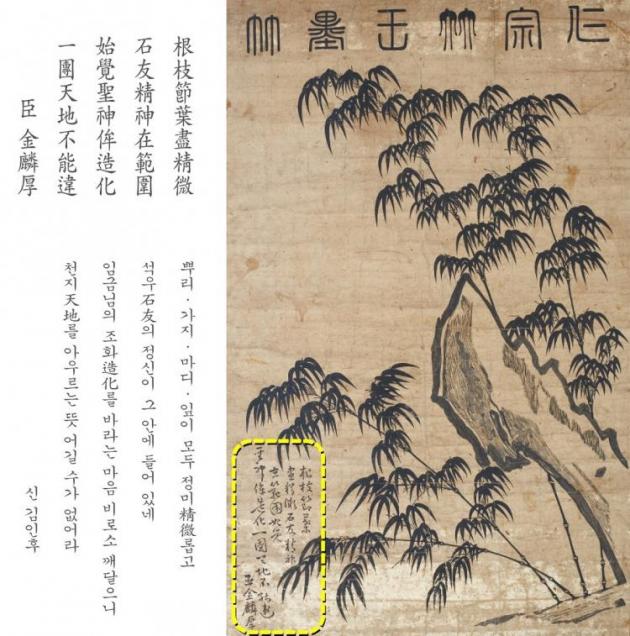 仁宗大王墨竹
根枝節葉盡精微
石友精神在範圍
始覺聖神侔造化
一團天地不能違
臣 金麟厚
뿌리·가지·마디·잎이 모두 정미精微롭고
석우石友의 정신이 그 안에 들어 있네
임금님의 조화造化를 바라는 마음 비로소 깨달으니
천지天地를 아우르는 뜻 어길 수가 없어라
신 김인후
根枝節葉
盡精微石友精神
在範圍始覺
聖神侔造化一團天地不能違
臣金麟厚